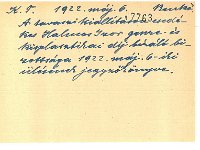 K. T. 1922. máj. 6. Benkő.
7763
A tavaszi kiállításra esedé-
kes Halmos Izor genre- és
kisplasztikai díj bíráló bi-
zottsága 1922. máj. 6-iki
ülésének jegyzőkönyve.